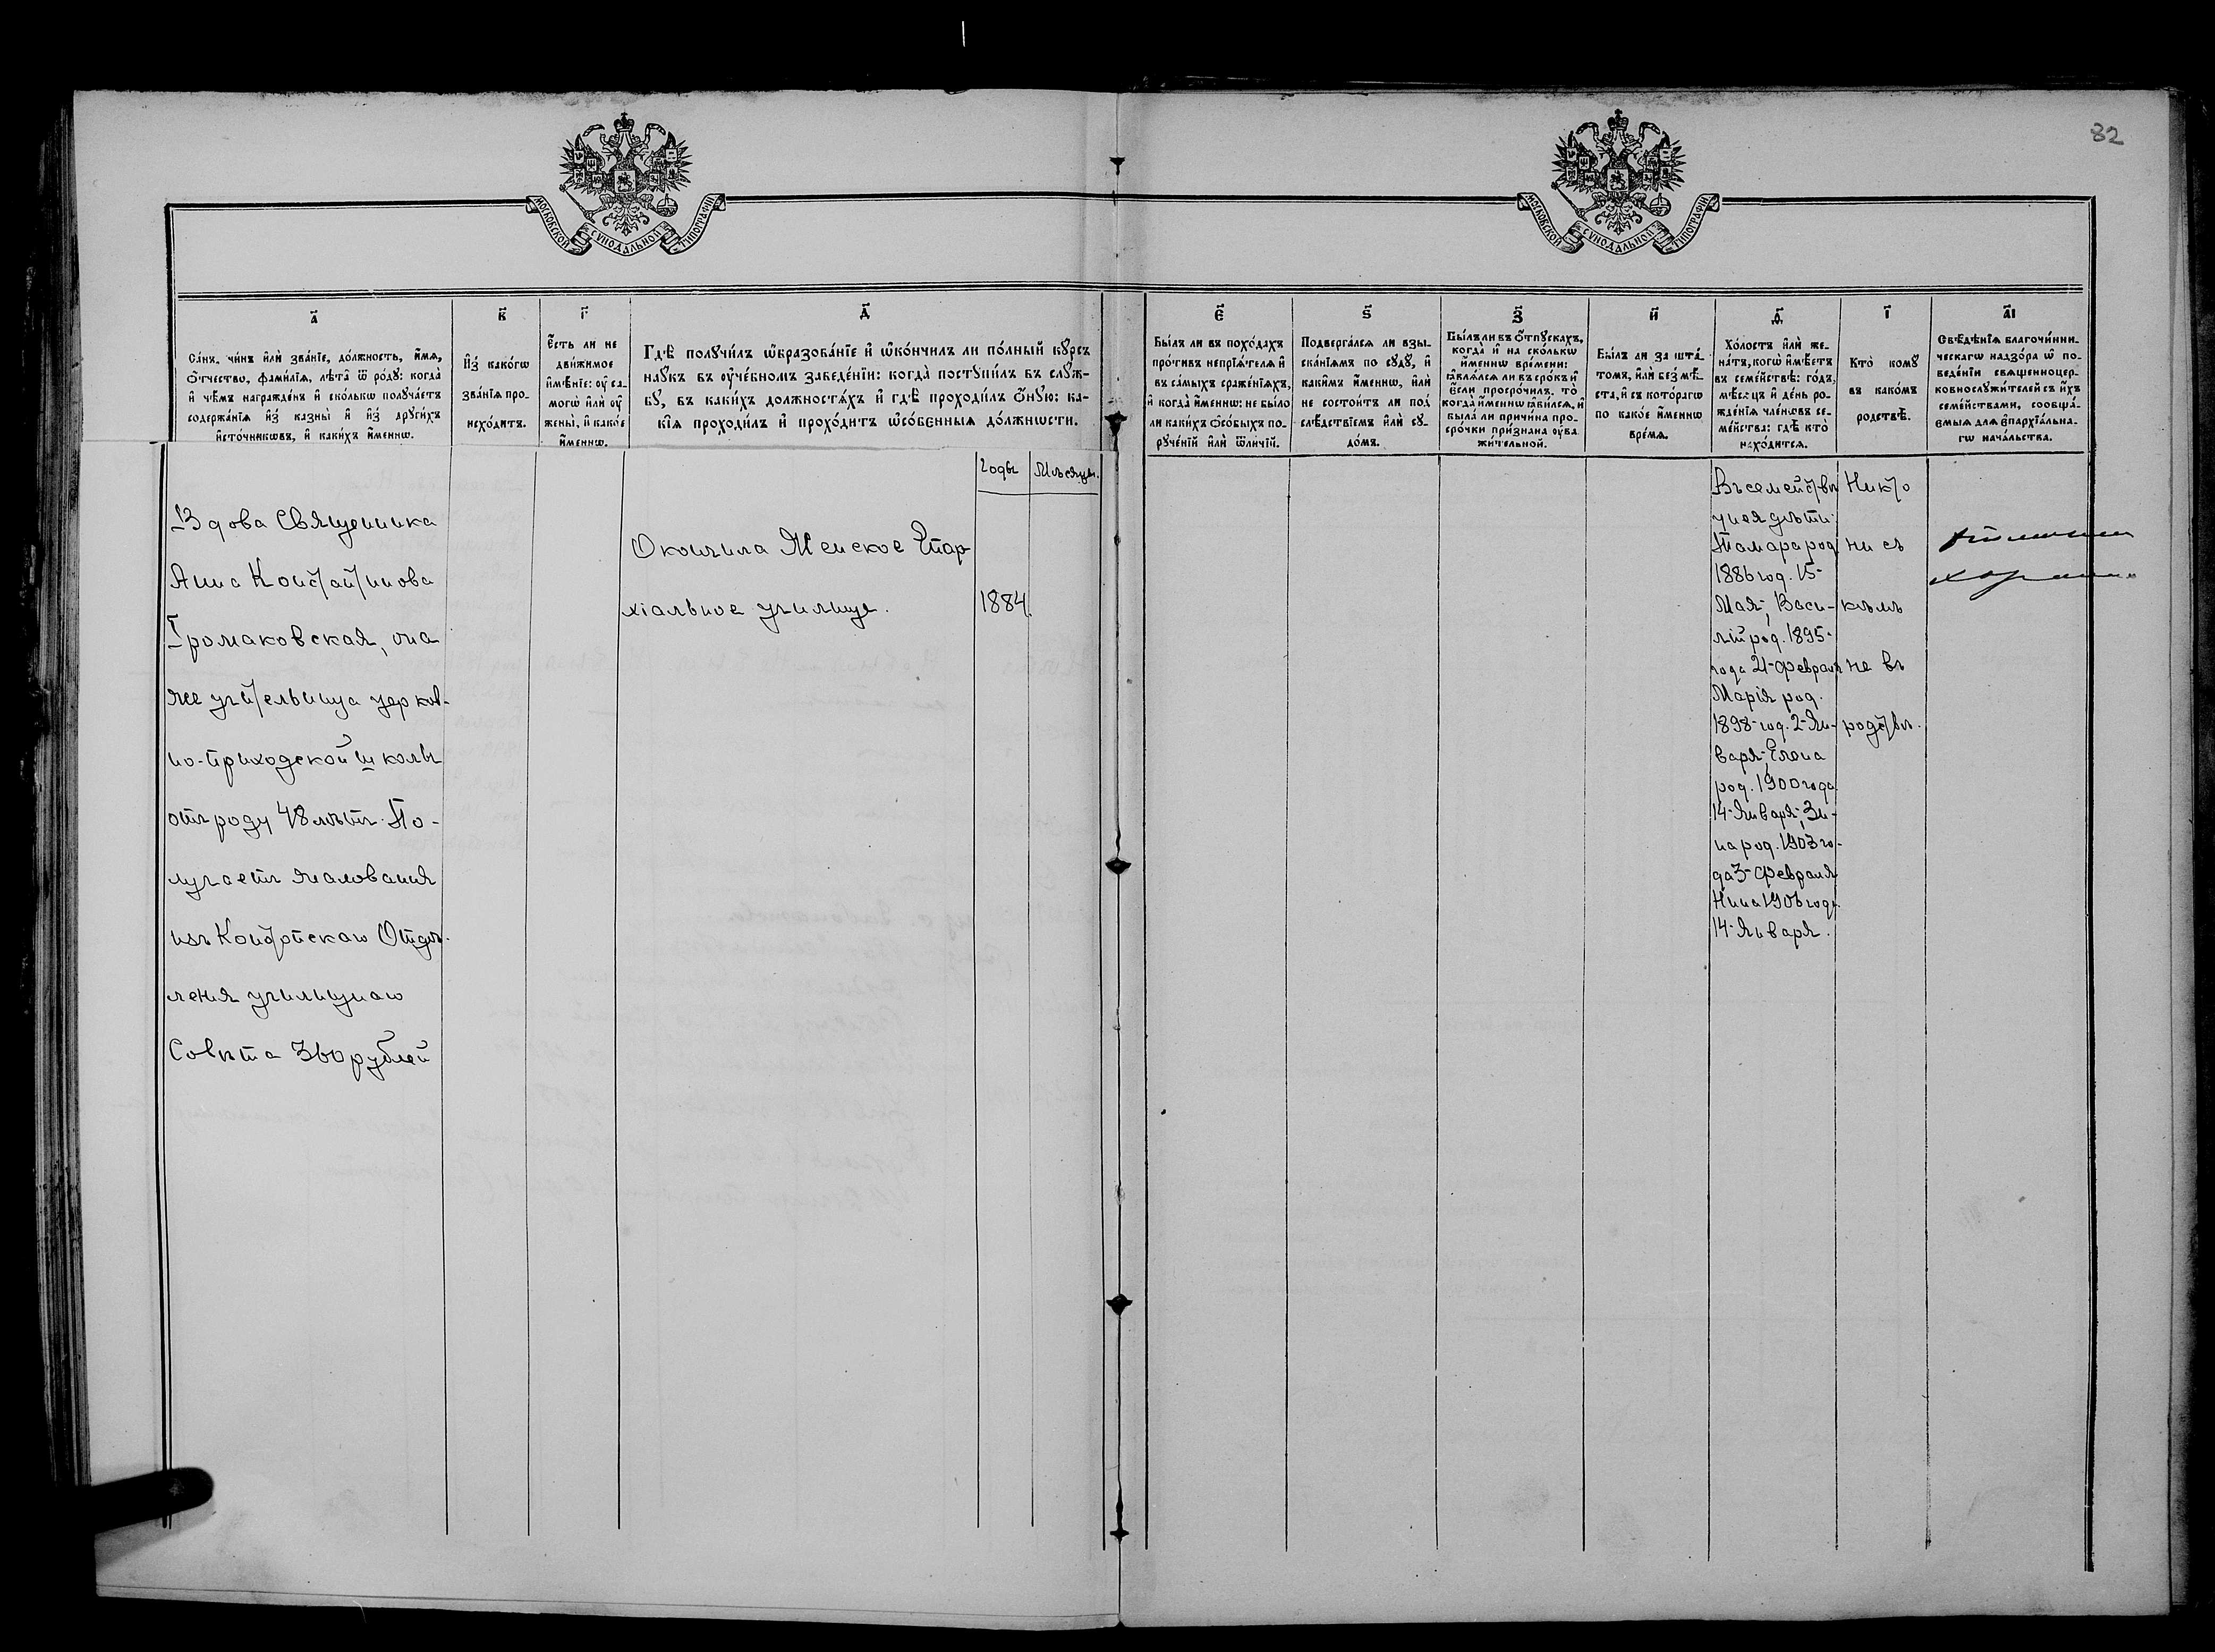 82
МОСКОВСКОЙ СѴНОДАЛЬНОЙ ТИПОГРАФІИ
МОСКОВСКОЙ СѴНОДАЛЬНОЙ ТИПОГРАФІИ
а҃
Са́нъ, чи́нъ и҆лѝ зва́нїе, до́лжность, и҆́мѧ,
ѻ҆́тчество, фами́лїѧ, лѣ́та ѿ ро́дꙋ: когда̀
и҆ чѣ́мъ награжде́нъ и҆ ско́лькѡ полꙋча́етъ
содержа́нїѧ и҆з̾ казны̀ и҆ и҆з̾ дрꙋги́хъ
и҆сто́чникѡвъ, и҆ каки́хъ и҆́меннѡ.
в҃
И҆з̾ како́гѡ
зва́нїѧ про-
исхо́дитъ.
г҃
Е҆́сть ли не
дви́жимое
и҆мѣ́нїе: ᲂу҆ са-
могѡ̀ и҆лѝ ᲂу҆
жены̀, и҆ како́е
и҆́меннѡ.
д҃
Гдѣ̀ полꙋчи́лъ ѡ҆бразова́нїе и҆ ѡ҆ко́нчилъ ли по́лный кꙋ́рсъ
наꙋ́къ въ ᲂу҆че́бномъ заведе́нїи: когда̀ постꙋпи́лъ въ слꙋ́ж-
бꙋ, въ каки́хъ должностѧ́хъ и҆ гдѣ̀ проходи́лъ ѻ҆́нꙋю: ка-
кі̑ѧ проходи́лъ и҆ прохо́дитъ ѡ҆со́бенныѧ до́лжнѡсти.
є҃
Бы́лъ ли въ похо́дахъ
про́тивъ непрїѧ́телѧ и҆
въ са́мыхъ сраже́нїѧхъ,
и҆ когда̀ и҆́меннѡ: не бы́ло
ли каки́хъ ѻ҆со́быхъ по-
рꙋче́нїй и҆лѝ ѿли́чїй.
ѕ҃
Подверга́лсѧ ли взы-
ска́нїѧмъ по сꙋдꙋ̀, и҆
каки́мъ и҆́меннѡ, и҆лѝ
не состои́тъ ли под̾
слѣ́дствїемъ и҆лѝ сꙋ-
до́мъ.
з҃
Бы́лъ ли въ ѻ҆́тпꙋскахъ,
когда̀ и҆ на ско́лькѡ
и҆́меннѡ вре́мени:
ꙗ҆влѧ́лсѧ ли въ сро́къ и҆
є҆́сли просро́чилъ, то̀
когда̀ и҆́меннѡ ꙗ҆ви́лсѧ, и҆
была̀ ли причи́на про-
сро́чки при́знана ᲂу҆ва
жи́тельной.
и҃
Бы́лъ ли за шта́-
томъ, и҆лѝ без̾ мѣ́-
ста, и҆ съ кото́рагѡ
по како́е и҆́меннѡ
вре́мѧ.
ѳ҃
Хо́лостъ и҆лѝ же-
на́тъ, когѡ̀ и҆мѣ́етъ
въ семе́йствѣ: го́дъ,
мѣ́сѧцъ и҆ де́нь ро-
жде́нїѧ чле́нѡвъ се-
ме́йства: гдѣ̀ кто̀
нахо́дитсѧ.
і҃
Кто̀ комꙋ̀
въ како́мъ
родствѣ̀.
а҃і
Свѣ́дѣнїѧ благочи́нни-
ческагѡ надзо́ра ѡ҆ по-
веде́нїи свѧщенноцер-
ковнослꙋжи́телей съ и҆́хъ
семе́йствами, сообща́-
ємыѧ длѧ є҆пархїа́льна-
гѡ нача́льства.
Годы Мѣсяцы.
Вдова Священника
Анна Константинова
Громаковская, она
же учительница церков-
но-приходской школы
отъ роду 48 лѣтъ. По-
лучаетъ жалованія
изъ Конотопскаго Отдѣ-
ленія училищнаго
Совѣта 360 рублей
Окончила Женское Епар-
хіальное училище. 1884.
Въ семействѣ
у нея дѣти:
Тамара род.
1886 год. 15-
Мая; Васи-
лій род. 1895-
года 21-Февраля
Марія род.
1898-год. 2-Ян-
варя; Елена
род. 1900 года
14-Января; Зи-
на род. 1903 го-
да 3-Февраля
Нина 1906 года
14-Января.
Никто
ни съ
кѣмъ
не въ
родствѣ.